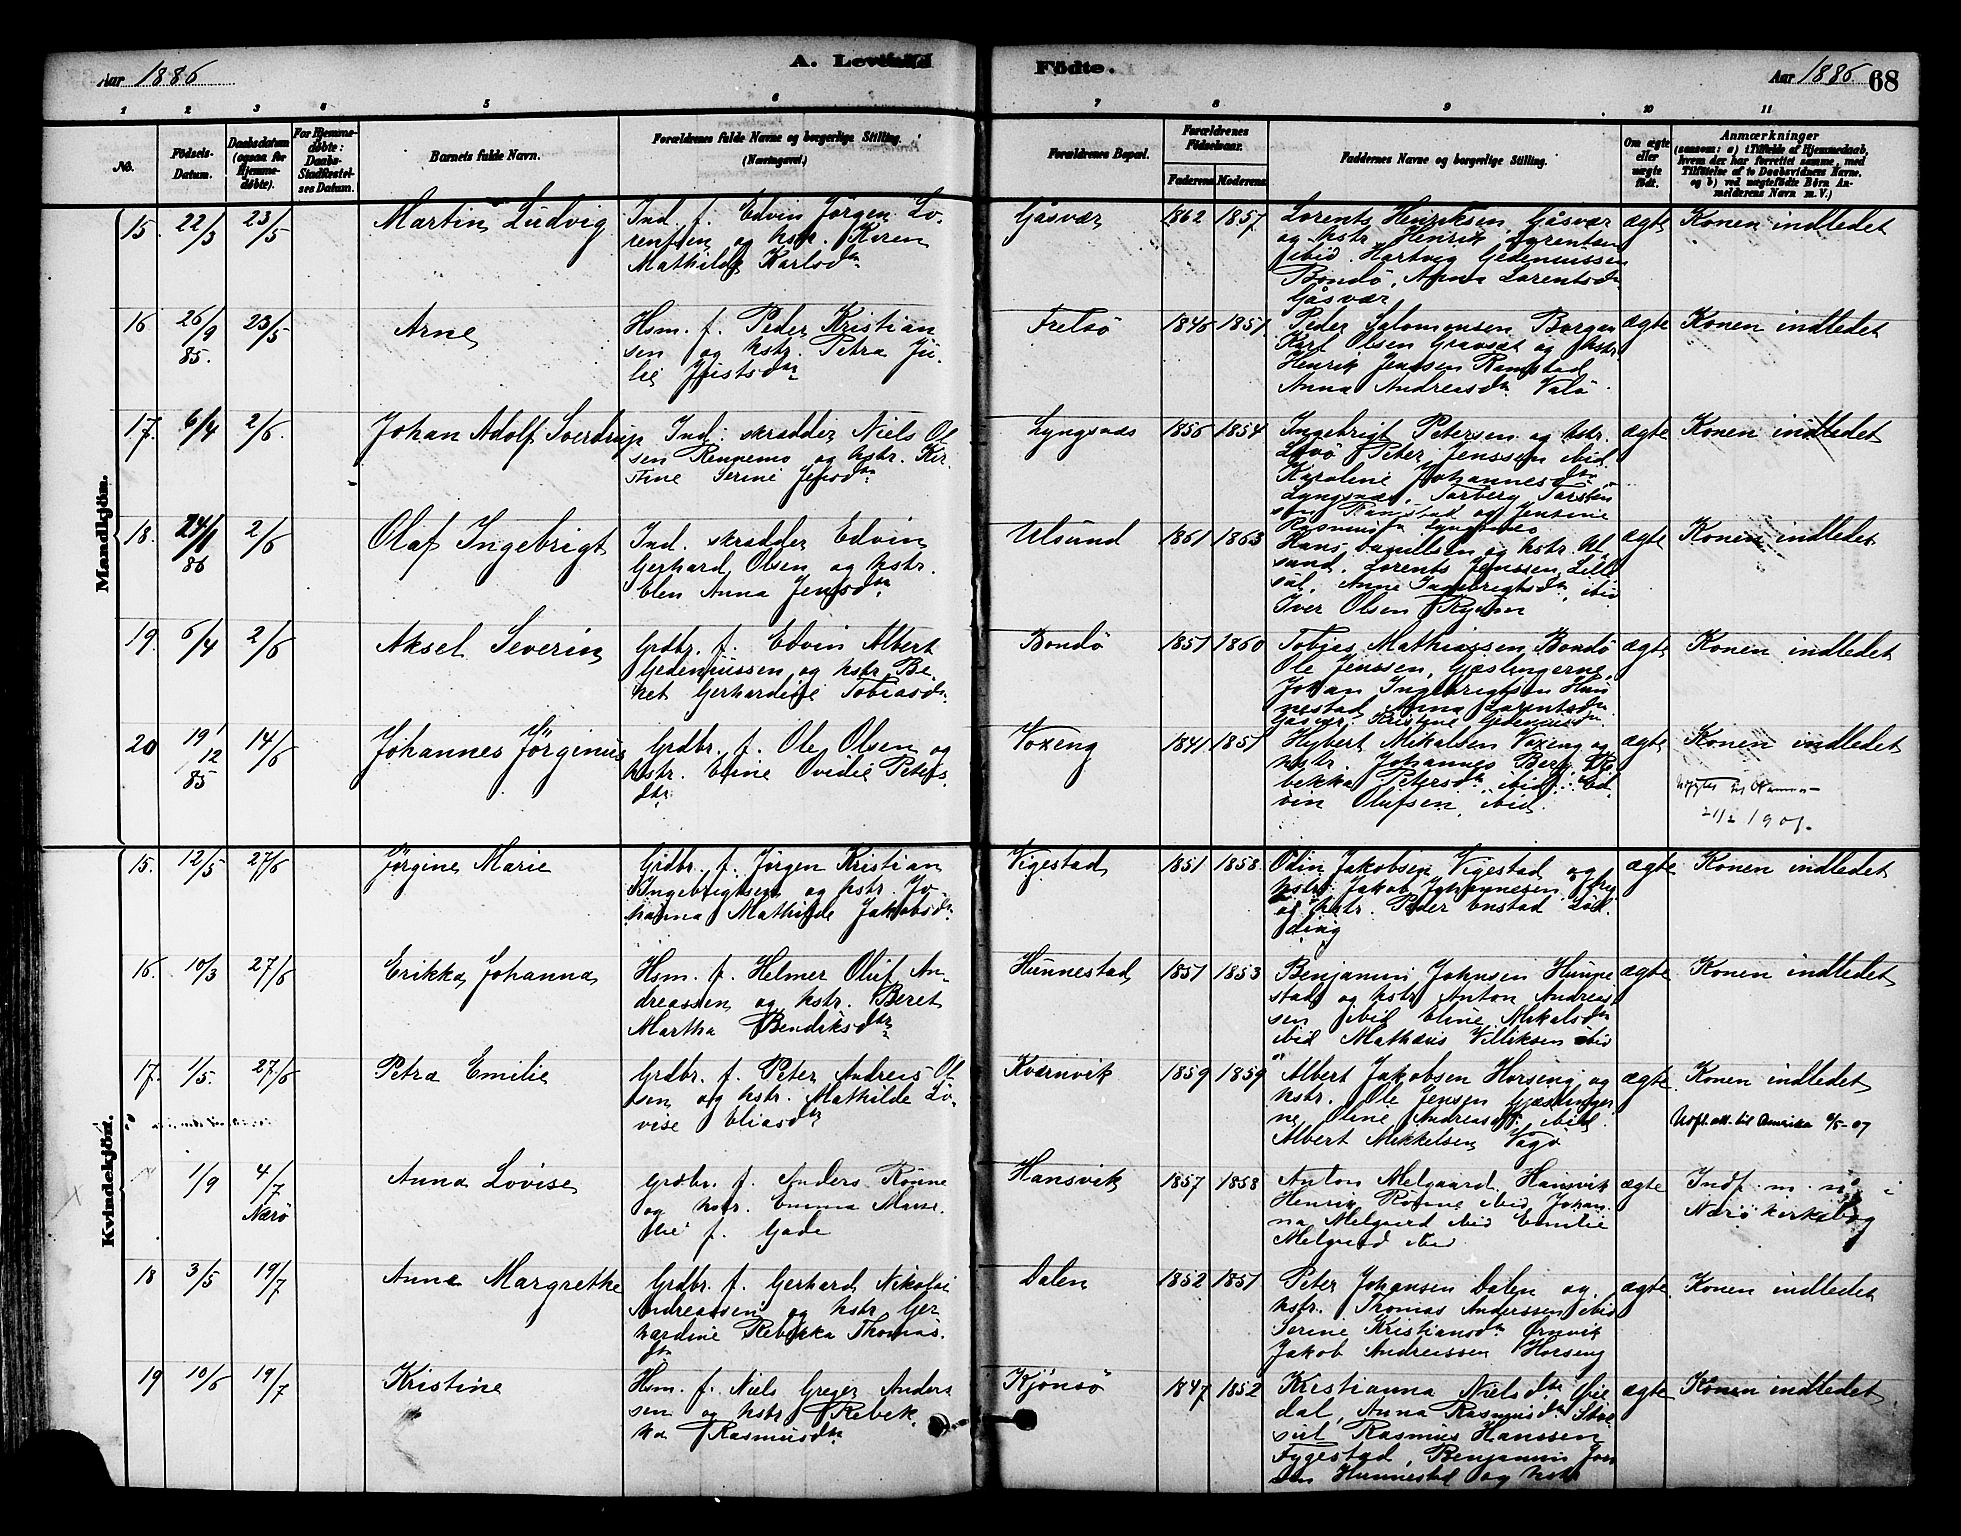 Aar 1886
A. Levende
Födte.
Aar 1886.
68
1 2 3 4 5 6 7 8 9 10 11
No.
Födsels-
Datum.
Daabsdatum
(ogsaa for
Hjemme-
døbte).
For Hjemme-
døbte:
Daabs-
Stadfæstel-
ses Datum.
Barnets fulde Navn.
Forældrenes fulde Navne og borgerlige Stilling.
(Næringsvei.)
Forældrenes Bopæl.
Forældrenes
Födselsaar.
Faderens Moderens
Faddernes Navne og borgerlige Stilling.
Om ægte
eller
uægte
født.
Anmærkninger
(saasom: a) i Tilfælde af Hjemmedaab,
hvem der har forrettet samme, med
Tilføielse af to Daabsvidners Navne.
og b) ved uægtefödte Börn An-
melderens Navn m. V.)
Mandkjön.
15. 22/3 23/5 Martin Ludvig
Ind. f. Edvin Jørgen Lo-
rentsen og hstr. Karen
Mathilde Karlsdtr
Gåsvær 1862 1857
Lorents Henriksen, Gåsvær
og hstr. Henrik Lorentsen
ibid. Hartvig Gedeniussen
Bondö, Anna Lorentsdtr
Gåsvær
ægte Konen indledet
16 26/9 85. 23/5 Arne
Hsm. f. Peder Kristian
sen og hstr. Petra Ju-
lie Justsdtr
Frelsö 1846 1851
Peder Salomonsen Borgan
Karl Olsen Gravsæt og hstr
Henrik Jenssen Ramstad
Anna Andreasdtr Valö
ægte Konen indledet
17. 6/4 2/6. Johan Adolf Sverdrup
Ind. skrædder Niels Ol
sen Rennemo og hstr. Kir-
stine Serine Jensdtr
Lyngsnæs 1856 1854
Ingebrigt Petersen og hstr.
Peter Jenssen ibid
Karoline Johannesdtr
Lyngsnæs, Torberg Torsten
sen Ramstad og Jensine
Rasmusdtr Lyngsnæs
ægte Konen indledet
18. 24/1 86 2/6 Olaf Ingebrigt
Ind. skrædder Edvin
Gerhard Olsen og hstr.
Elen Anna Jensdtr
Ulsund 1861 1863
Hans og hstr. Ul
sund, Lorents Jenssen Lille
Anne Ingebrigtsdtr, ibid
Iver Olsen
ægte Konen indledet
19. 6/4 2/6 Aksel Severin
Grdbr. f. Edvin Albert
Gedeniussen og hstr. Be-
ret Gerhardine Tobiasdtr
Bondö 1851 1860
Tobias Mathiassen Bondö
Ole Jenssen, Gjæslingerne,
Johan Ingebrigtsen Hun
nestad Anna Lorentsdtr
Gåsvær, Kristine Gedeniusdtr
ægte Konen indledet
20 19/12 85 14/6 Johannes Jörginus
Grdbr. f. Ole Olsen og
hstr. Eline Ovidie Peters
dtr.
Voxeng 1841 1851
Hybert Mikalsen Voxeng og
hstr. Johannes Berg Re
bekka Petersdtr ibid. Ed-
vin Olufsen, ibid.
ægte Konen indledet
til
1901.
Kvindekjön.
15. 12/5 27/6 Jörgine Marie
Grdbr. f. Jörgen Kristian
Ingebrigtsen og hstr. Jo-
hanna Mathilde Jakobsdtr
Vigestad 1851 1858.
Odin Jakobsen Vigestad og
hstr. Jakob Johannesen
og hstr. Peder Enstad Löd
ding
ægte Konen indledet
16. 10/3 27/6 Erikka Johanna
Hsm. f. Helmer Oluf An-
dreassen og hstr. Beret
Martha Bendriksdtr
Hunnestad 1851 1853
Benjamin Johnsen Hunne
stad og hstr Anton Andreas
sen ibid Eline Mikalsdtr
ibid Mathæus Villiksen ibid
ægte Konen indledet
17. 1/5. 27/6 Petra Emilie
Grdbr. f. Peter Andreas Ol
sen og hstr. Mathilde Lo-
vise Eliasdtr
Kværnvik 1859 1859
Albert Jakobsen Horseng og
hstr. Ole Jensen Gjæslinger
ne, Oline Andreasdtr. ibid
Albert Mikkelsen Vågö
ægte Konen indledet
Utfl. att. til Amerika 6/5-07
1/9 4/7 Nærö Anna Lovise
Grdbr. f. Anders Rönne
og hstr. Emma Marie.
f. Gade
Hansvik 1857 1858
Anton Melgaard Hansvik
Henrik Rönne ibid Johan-
na Melgaard ibid Emilie
Melgaard ibid
ægte Indf. m. no i
Nærö kirkebog
18 3/5 19/7 Anna Margrethe
Grdbr. f. Gerhard Nikolai
Andreassen og hstr Ger
hardine Rebekka Thomas.
dtr
Dalen 1852 1851
Peter Johansen Dalen og
hstr. Tromas Anderssen ibid
Serine Kristiansdtr Ørnvik
Jakob Andreassen Horseng
ægte Konen indledet
19 10/6 19/7 Kristine
Hsm. f. Niels Greger Anders
sen og hstr Rebek
ka Rasmusdtr
Kjönsö 1847 1852
Kristianna Nielsdtr
dal, Anna Rasmusdtr
Rasmus Hanssen
Fygestad, Benjamin John
sen Hunnestad og hstr
ægte Konen indledet